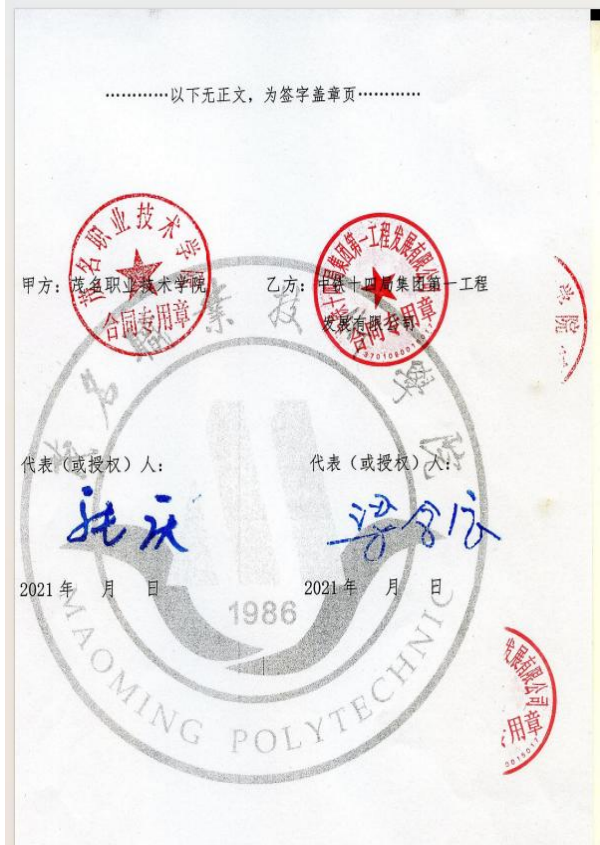 …………以下无正文，为签字盖章页…………
茂名职业技术学院
合同专用章
中铁十四局集团第一工程发展有限公司
合同专用章
甲方：茂名职业技术学院
乙方：中铁十四局集团第一工程
发展有限公司
学院
茂名職業技術學院
代表（或授权）人：
代表（或授权）人：
2021 年 月 日
2021 年 月 日
1986
MAOMING POLYTECHNIC
发展有限公司
用章